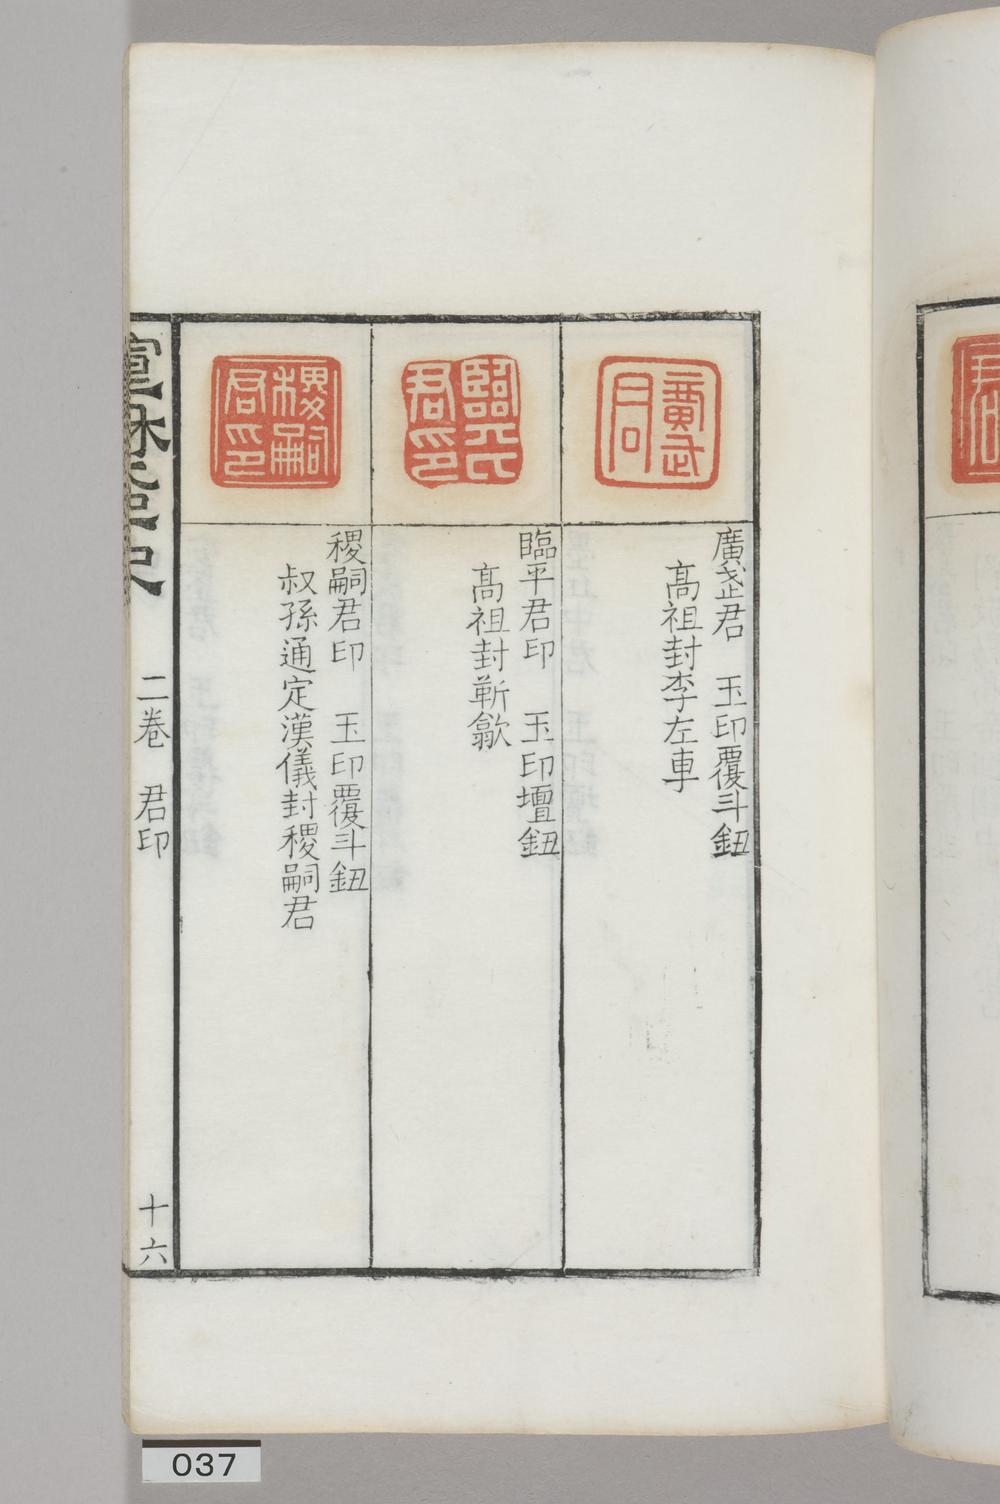 廣武
君
廣武君　玉印覆斗鈕
高祖封李左車
臨平
君印
臨平君印　玉印壇鈕
高祖封靳歙
稷嗣
君印
稷嗣君印　玉印覆斗鈕
叔孫通定漢儀封稷嗣君
二卷　君印
十六
037